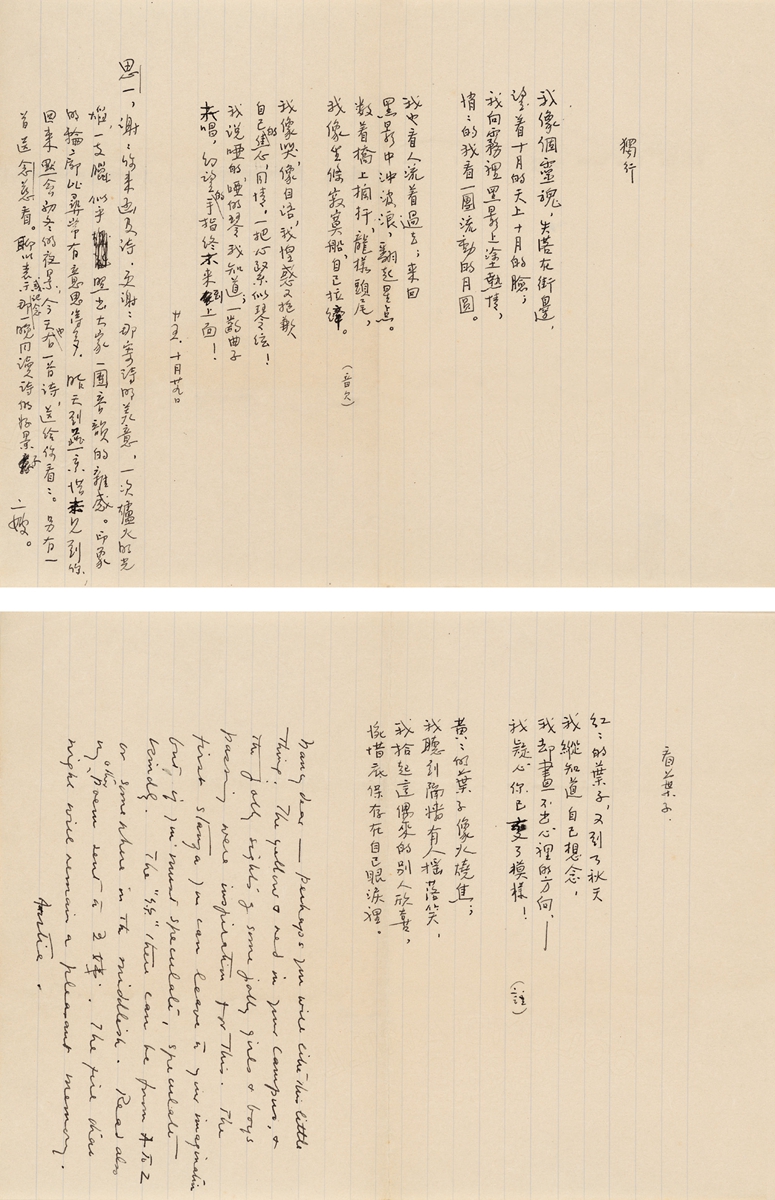 獨行
我像個靈魂，失落在街邊，
望着十月的天上十月的臉；
我向霧裡黑影上塗熱情，
悄悄的我看一團流動的月圓。
我也看人流着過去；來回
黑影中沖波浪，翻起星点。
数着橋上欄杆，龍樣頭尾，
我像坐條寂寞船，自己拉縴。
（音欠）
我像哭，像自語，我惶惑又抱歉
自己的焦心，同情，一把心緊似琴弦！
我说啞的，啞的琴我知道；一齣曲子
未唱，幻望的手指終未來到上面！
廿五，十月廿九日
思一，謝：
一次爐火的光
音韻的雜感。印象
昨天到 未見到你，
回來 初冬的夜景，今天也有一首詩，送給你看：。另有一
首送念慈看。聊以表示那晚同讀诗的好景
看葉子
紅：的葉子，又到了秋天
我縱知道自己想念，
我却畫不出心裡的方向，——
我疑心你已變了模樣！
（註）
黃：的葉子像火燒焦；
我聽到隔墻有人搖落笑，
我拾起這偶來的別人欣喜，
惋惜底保存在自己眼淚裡。
Nancy dear — perhaps you will like this little
thing. The yellow & red in your campus, &
the jolly sights of some jolly girls & boys
passing were inspiration for this. The
first stanza you can leave to your imagination
but if you must speculate, speculate
kindly. The "你" there can be from A to Z
or somewhere in the middlish. Read also
my other poem sent to The fire
night will remain a pleasant memory.